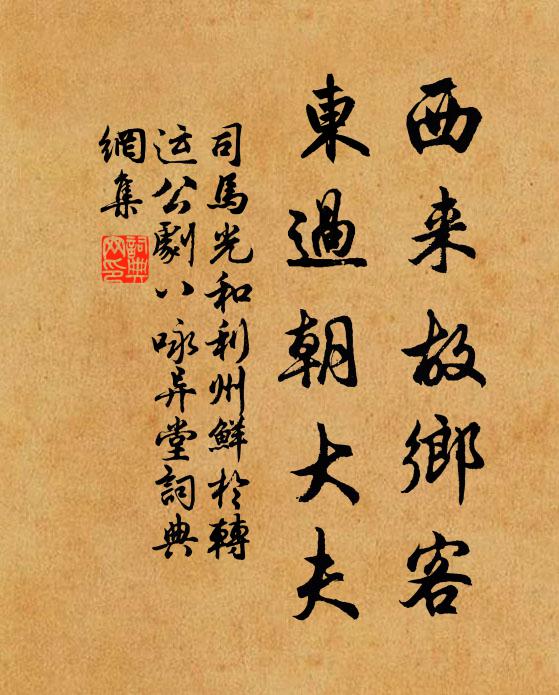 西来故鄉客
東過朝大夫
司馬光和利州鮮於轉
运公劇八咏异堂詞典
網集
詞典
网印